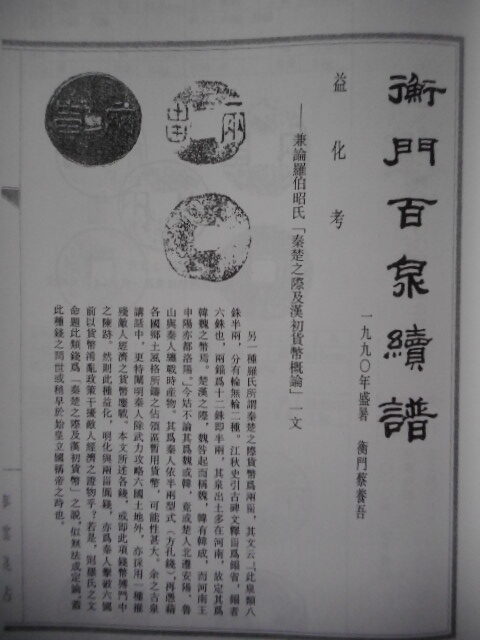 衡門百泉續譜
一九九〇年盛暑　衡門蔡養吾
益化考
——兼論羅伯昭氏「秦楚之際及漢初貨幣概論」一文
另一種羅氏所謂秦楚之際貨幣爲兩甾，其文云「此泉類八
銖半兩，分有輪無輪二種。江秋史引古碑文釋甾爲錙省，錙者
六銖也，兩錙爲十二銖即半兩，其泉出土多在河南，故定其爲
韓魏之幣焉。楚漢之際，魏咎起而稱魏，韓有韓成，而河南王
申陽亦都洛陽。」今姑不論其爲魏或韓，竟或楚人北遷安陽，魯
山與秦人纏戰時產物。其爲秦人依半兩型式（方孔錢），再憑藉
各國鄉土風格所鑄之佔領區暫用貨幣，可能性甚大。余之古泉
講話中，更特闡明秦人除武力攻略六國土地外，亦採用一種摧
殘敵人經濟之貨幣應戰。本文所述各錢，或即此項錢幣搏鬥中
之陳跡。然則此種益化，明化與兩甾圓錢，亦爲秦人擊破六國
前以貨幣淆亂政策干擾敵人經濟之證物乎？若是，則羅氏之文
命題此類錢爲「秦楚之際及漢初貨幣」之說，似無法成定論，蓋
此種錢之問世或稍早於始皇立國稱帝之時也。